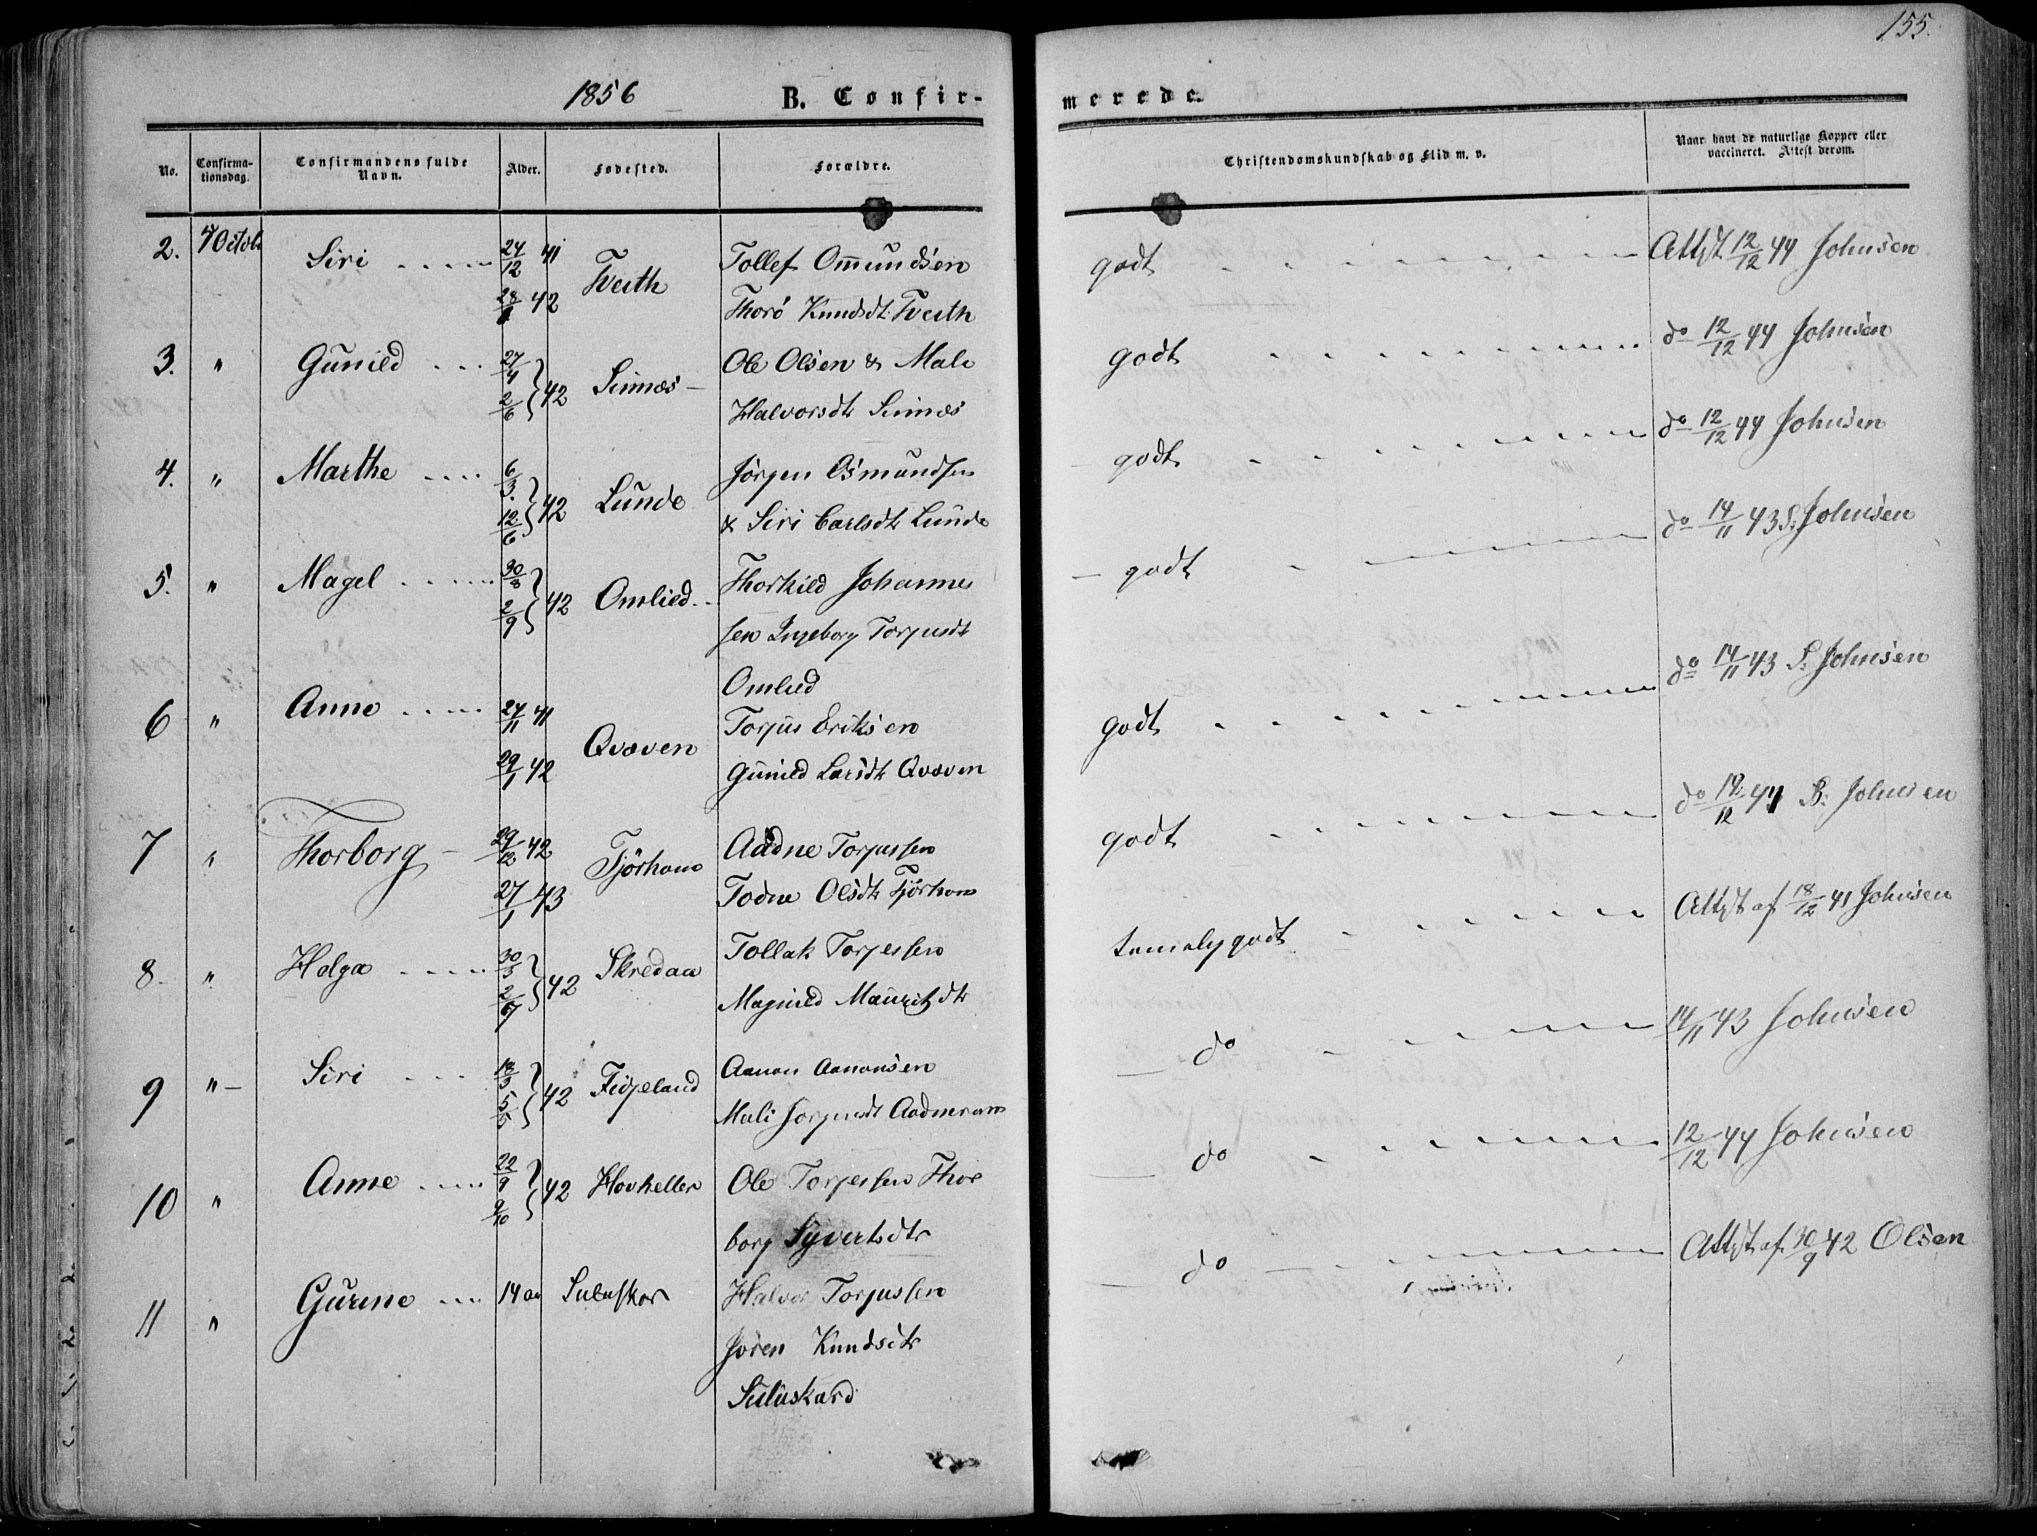 155.
1856
B. Confir-
merede.
No.
Confirma-
tionsdag.
Confirmandens fulde
Navn.
Alder.
Fødested.
Forældre.
Christendomskundskab og Flid m. v.
Naar havt de naturlige Kopper eller
vaccineret. Attest derom.
2. 7 Octob Siri 24/12 41 Tveith Tollef Omundsen godt Attst 12/12 44 Johnsen
42 Thorø Knudsdt Tveith
3. " Gunild 27/4 Sinnæs Ole Olsen & Mali godt do 12/12 44 Johnsen
2/6 42 Halvorsdt Sinnæs
4. " Marthe 6/3 Lunde Jörgen Osmundsen godt do 12/12 44 Johnsen
12/6 42 & Siri Carlsdt Lunde
5. " Magel 30/8 Omlied Thorkild Johanne godt do 14/11 43 S. Johnsen
2/9 42 sen Ingeborg Torjusdt
Omlied
6 " Anne 24/11 41 Qvæven Torjus Eriksen godt do 14/11 43 S. Johnsen
29/1 42 Gunild Larsdt Qvæven
7 " Thorborg 29/12 42 Tjörhom Aadne Torjussen godt do 12/12 44 S. Johnsen
27/1 43 Todne Olsdt Tjörhom
8 " Helga 30/5 Skredaa Tollak Torjessen temelig godt Attst af 18/12 41 Johnsen
42 Magnild Mauritzdt
9 " Siri 18/3 Fidjeland Aanon Aanonsen do 14/11 43 Johnsen
5/5 42 Mali Jorgensdt
10 " Anne 22/9 Hovheller Ole Torjessen Thor do 12/12 44 Johnsen
9/10 42 borg Syvertsdtr
11 " Gurine 14 aa Suluskar Halvor Torjussen do Attst af 30/9 42 Olsen
Joren Knudsdtr
Suluskard